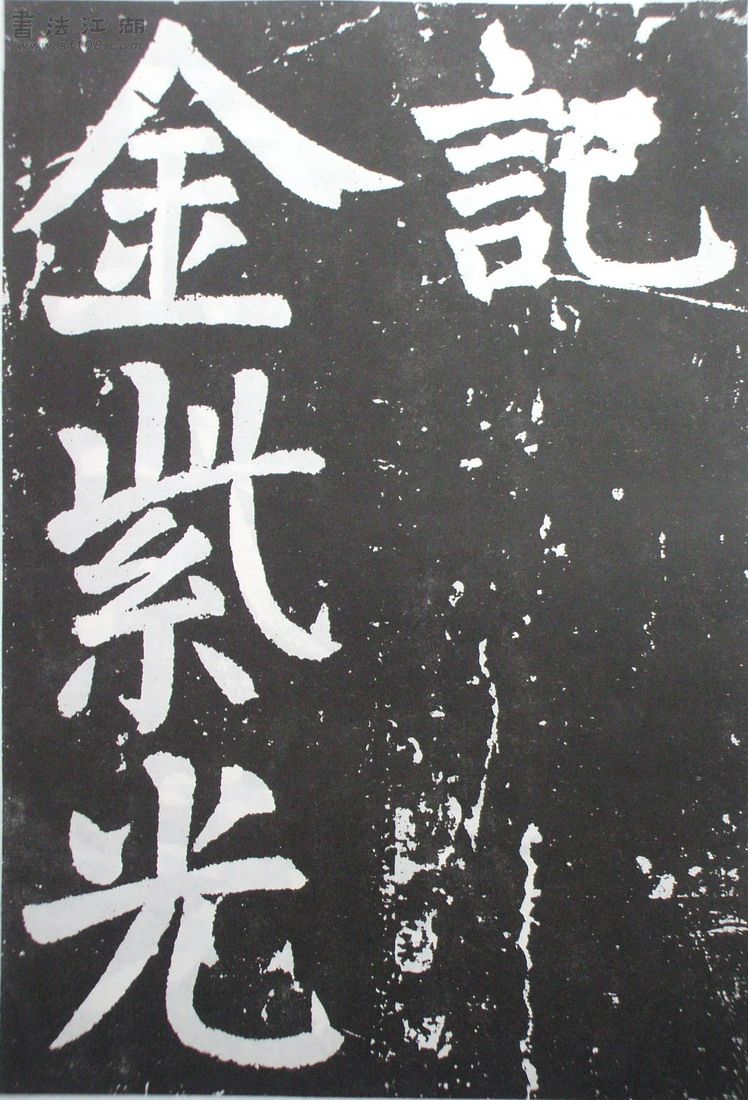 書法江湖
www.sf108.com
記
金紫光